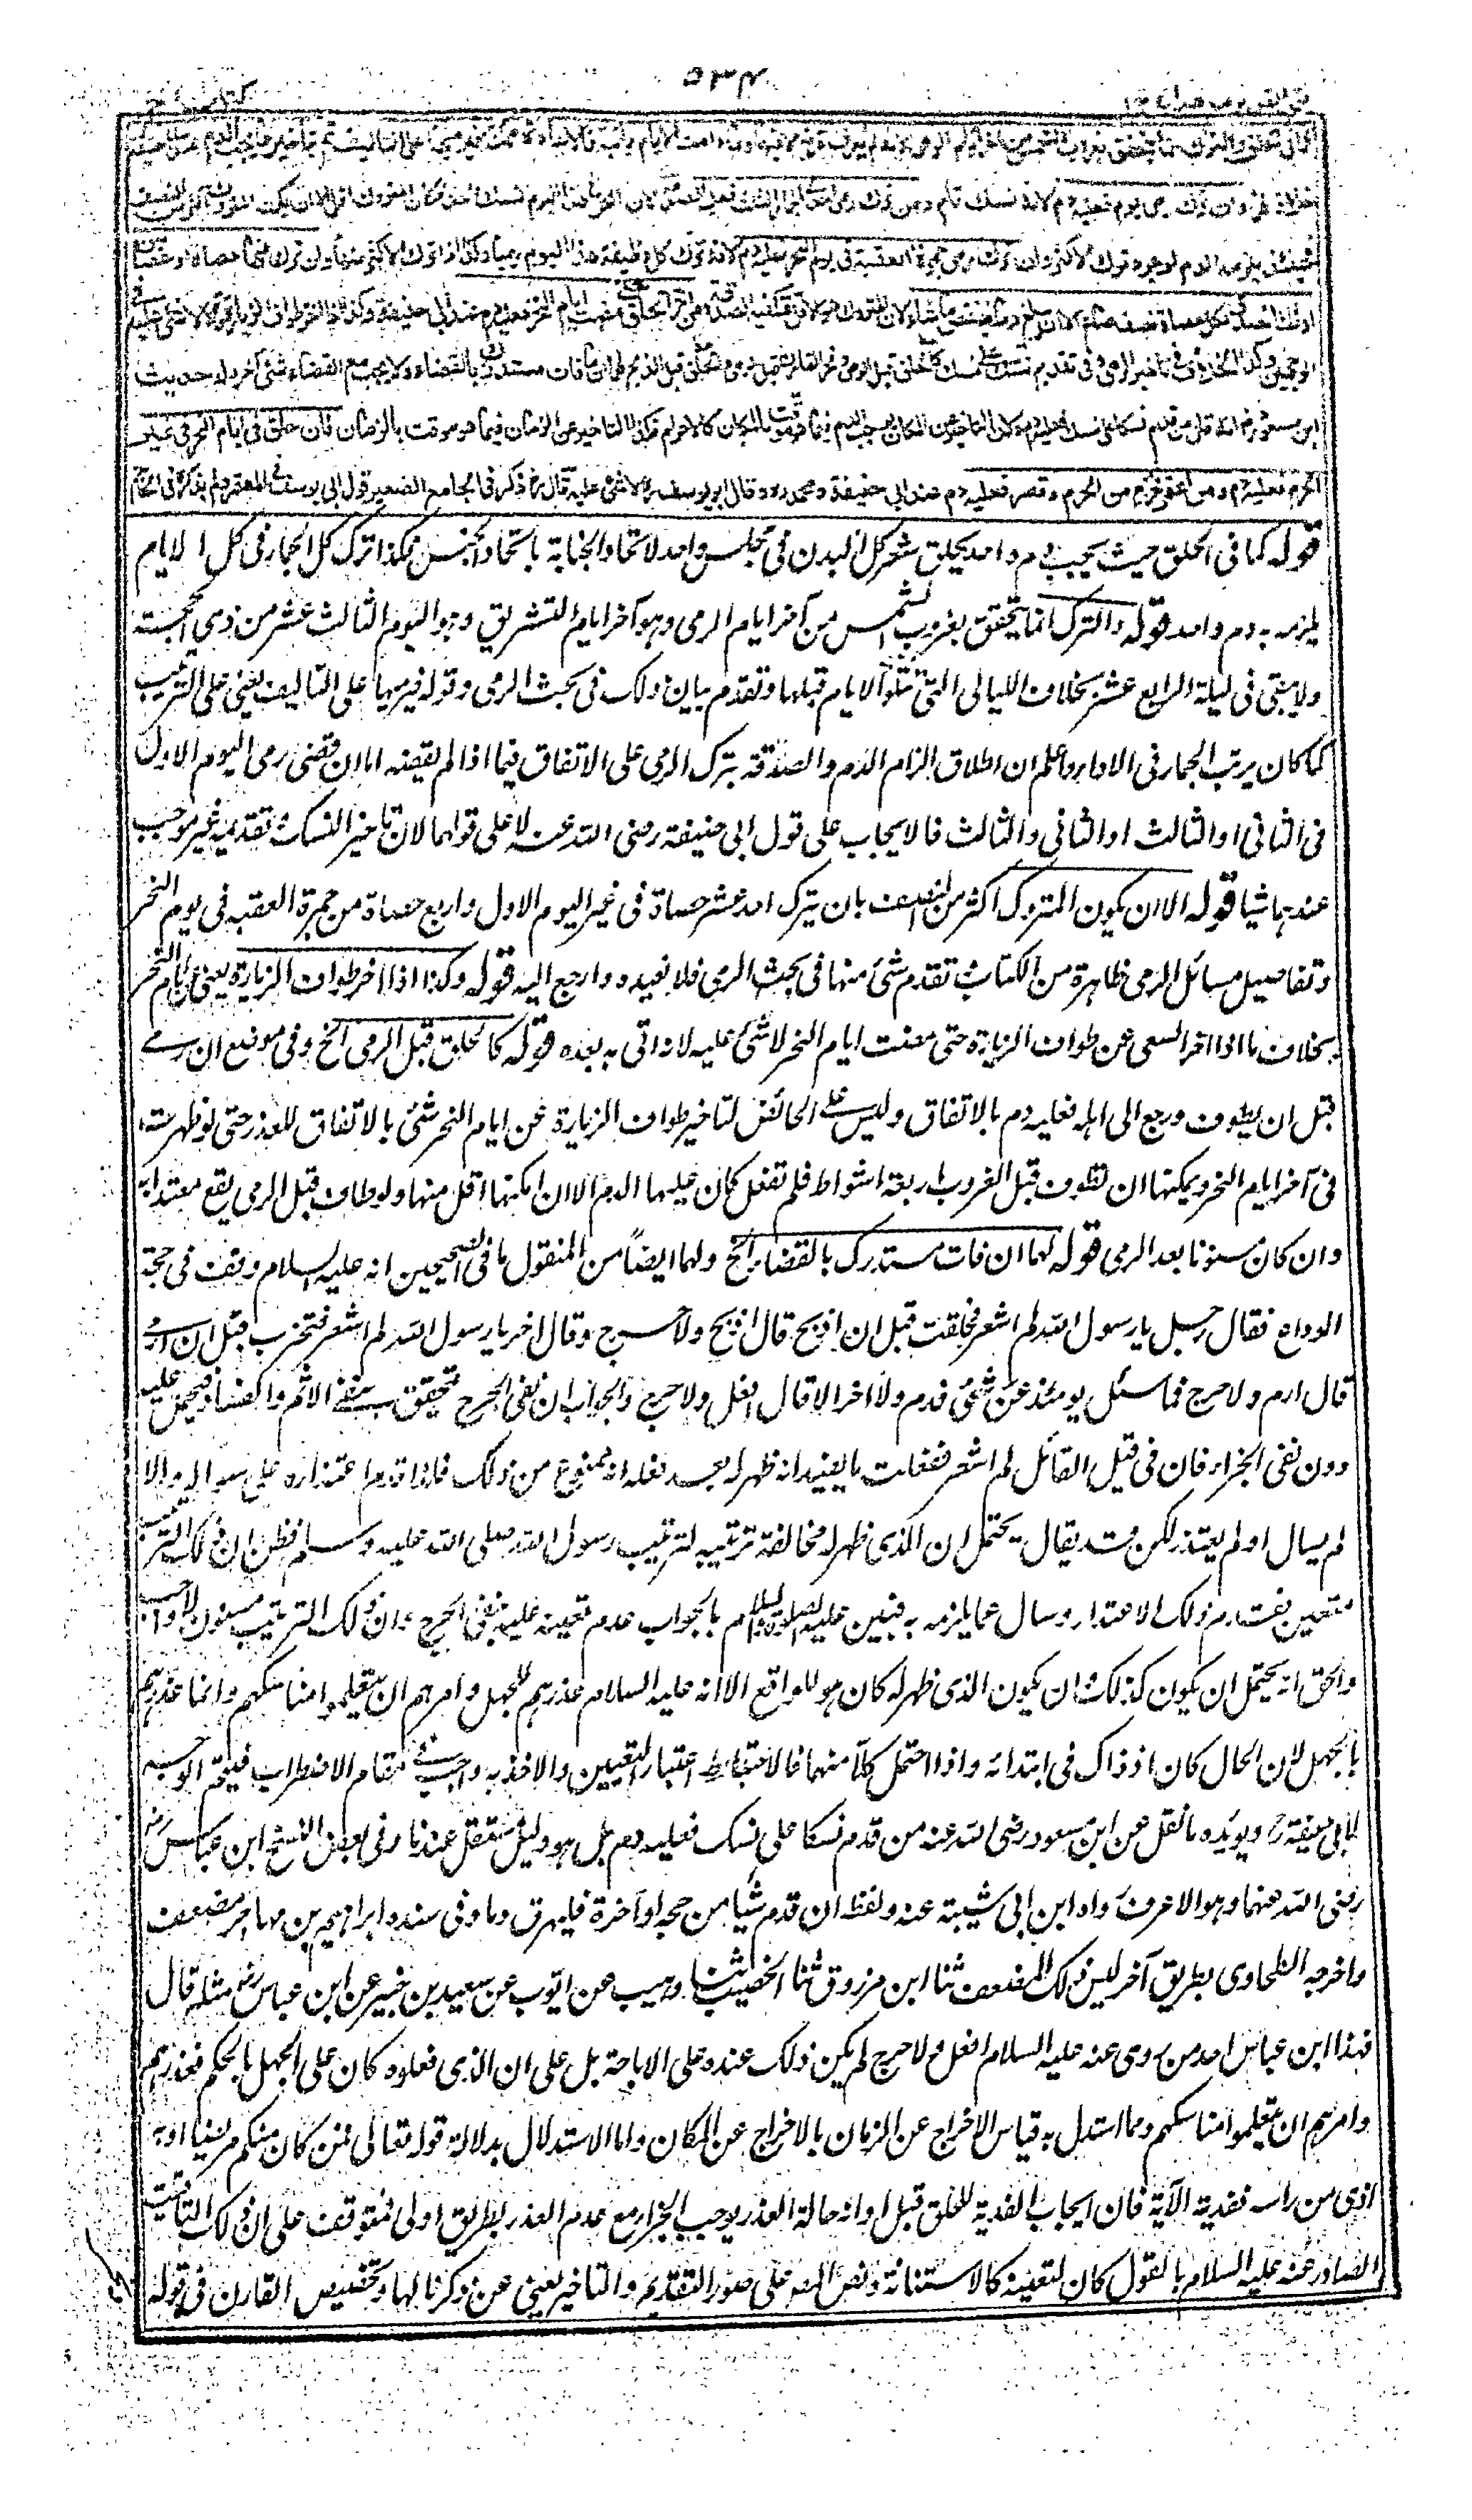 ۵۳۴
خلافا لهما وان ترك رمي يوم فعليه دم لانه نسك تام ومن ترك رمي احدى الجمار الثلث فعليه الصدقة لان الكل في هذا اليوم نسك واحد فكان المتروك اقل الا ان يكون المتروك اكثر من النصف
فحينئذ يلزمه الدم لوجود ترك الاكثر وان ترك رمي جمرة العقبة في يوم النحر فعليه دم لانه ترك كل وظيفة هذا اليوم رميا وكذا اذا ترك الاكثر منها وان ترك منها حصاة او حصاتين
او ثلثا تصدق لكل حصاة نصف صاع الا ان يبلغ دما فينقص ما شاء لان المتروك هو الاقل فتكفيه الصدقة ومن اخر الحلق حتى مضت ايام النحر فعليه دم عند ابي حنيفة وكذا اذا اخر طواف الزيارة وقالا لا شئ عليه في
الوجهين وكذا الخلاف في تاخير الرمي وفي تقديم نسك على نسك كالحلق قبل الرمي ونحر القارن قبل الرمي والحلق قبل الذبح لهما ان ما فات مستدرك بالقضاء ولا يجب مع القضاء شئ آخر وله حديث
ابن مسعود رض انه قال من قدم نسكا على نسك فعليه دم ولان التاخير عن المكان يوجب الدم فيما هو موقت بالمكان كالاحرام فكذا التاخير عن الزمان فيما هو موقت بالزمان فان حلق في ايام النحر في غير
الحرم فعليه دم ومن اعتمر فخرج من الحرم وقصر فعليه دم عند ابي حنيفة ومحمد رح وقال ابو يوسف رح لا شئ عليه قال رض ذكر في الجامع الصغير قول ابي يوسف في المعتمر ولم يذكره في الحاج
قوله كما في الحلق حيث يجب دم واحد بحلق شعر كل البدن في مجلس واحد لاتحاد الجناية باتحاد الجنس فكذا ترك كل الجمار في كل الايام
يلزمه به دم واحد قوله والترك انما يتحقق بغروب الشمس من آخر ايام الرمي وهو آخر ايام التشريق وهو اليوم الثالث عشر من ذي الحجة
ولا يبقى في ليلة الرابع عشر بخلاف الليالي التي تتلو الايام قبلها وتقدم بيان ذلك في بحث الرمي وقوله فيرميها على التاليف يعني على الترتيب
كما كان يرتب الجمار في الاداء واعلم ان اطلاق الزام الدم والصدقة بترك الرمي على الاتفاق فيما اذا لم يقضه اما ان قضى رمي اليوم الاول
في الثاني او الثالث او الثاني والثالث فالايجاب على قول ابي حنيفة رضي الله عنه لا على قولهما لان تاخير النسك وتقديمه غير موجب
عندهما شيا قوله الا ان يكون المتروك اكثر من النصف بان يترك احد عشر حصاة في غير اليوم الاول واربع حصاة من جمرة العقبه في يوم النحر
وتفاصيل مسائل الرمي ظاهرة من الكتاب تقدم شئ منها في بحث الرمي فلا نعيده وارجع اليه قوله وكذا اذا اخر طواف الزيارة يعني عن ايام النحر
بخلاف ما اذا اخر السعي عن طواف الزيارة حتى مضت ايام النحر لا شئ عليه لانه اتى به بعده قوله كالحلق قبل الرمي الخ وفي موضع ان رمى
قبل ان يطوف ورجع الى اهله فعليه دم بالاتفاق وليس على الحائض لتاخير طواف الزيارة عن ايام النحر شئ بالاتفاق للعذر حتى لو طهرت
في آخر ايام النحر ويمكنها ان تطوف قبل الغروب اربعة اشواط فلم تفعل كان عليها الدم الا ان امكنها اقل منها ولو طاف قبل الرمي يقع معتدا به
وان كان مسنونا بعد الرمي قوله لهما ان ما فات مستدرك بالقضاء الخ ولهما ايضاً من المنقول ما في الصحيحين انه عليه السلام وقف في حجة
الوداع فقال رجل يا رسول الله لم اشعر فحلقت قبل ان اذبح قال اذبح ولا حرج وقال اخر يا رسول الله لم اشعر فنحرت قبل ان ارمي
قال ارم ولا حرج فما سئل يومئذ عن شئ قدم ولا اخر الا قال افعل ولا حرج والجواب ان نفي الحرج يتحقق بنفي الاثم والفساد فيحمل عليه
دون نفي الجزاء فان في قيل القائل لم اشعر ففعلت ما يفيد انه ظهر له بعد فعله انه ممنوع من ذلك فلذا قدم اعتذاره على سواله والا
لم يسال او لم يعتذر لكن قد يقال يحتمل ان الذي ظهر له مخالفة ترتيبه لترتيب رسول الله صلى الله عليه وسلم فظن ان ذلك الترتيب
متعين فقدم ذلك الاعتذار وسال عما يلزمه به فبين عليه الصلوة والسلام بالجواب عدم تعينه عليه بنفي الحرج وان ذلك الترتيب مسنون لا واجب
والحق انه يحتمل ان يكون كذلك وان يكون الذي ظهر له كان هو الواقع الا انه عليه السلام عذرهم للجهل وامرهم ان يتعلموا مناسكهم وانما عذرهم
بالجهل لان الحال كان اذ ذاك في ابتدائه واذا احتمل كلا منهما فالاحتياط اعتبار التعيين والاخذ به واجب في مقام الاضطراب فيتم الوجه
لابي حنيفة رح ويؤيده ما نقل عن ابن مسعود رضي الله عنه من قدم نسكا على نسك فعليه دم بل هو دليل مستقل عندنا وفي بعض النسخ ابن عباس
رضي الله عنهما وهو الاعرف رواه ابن ابي شيبة عنه ولفظه ان قدم شيا من حجه او آخره فليهرق دما وفي سنده ابراهيم بن مهاجر مضعف
واخرجه الطحاوي بطريق آخر ليس ذلك المضعف ثنا ابن مرزوق ثنا الخصيب ثنا وهيب عن ايوب عن سعيد بن جبير عن ابن عباس رض مثله قال
فهذا ابن عباس احد من روى عنه عليه السلام افعل ولا حرج لم يكن ذلك عنده على الاباحة بل على ان الذي فعلوه كان على الجهل بالحكم فعذرهم
وامرهم ان يتعلموا مناسكهم ومما استدل به قياس الاخراج عن الزمان بالاخراج عن المكان واما الاستدلال بدلالة قوله تعالى فمن كان منكم مريضا او به
اذى من راسه ففدية الآية فان ايجاب الفدية للحلق قبل اوانه حالة العذر يوجب الجزاء مع عدم العذر بطريق اولى فمتوقف على ان ذلك التاقيت
الصادر عنه عليه السلام بالقول كان لتعينه لا لاستنانه ونص المص على صور التقديم والتاخير يعني عن ذكرنا لها وتخصيص القارن في قوله